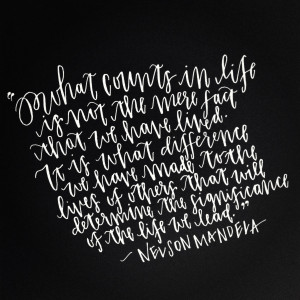 "What counts in life
is not the mere fact
that we have lived.
It is what difference
we have made to the
lives of others that will
determine the significance
of the life we lead."
~ NELSON MANDELA